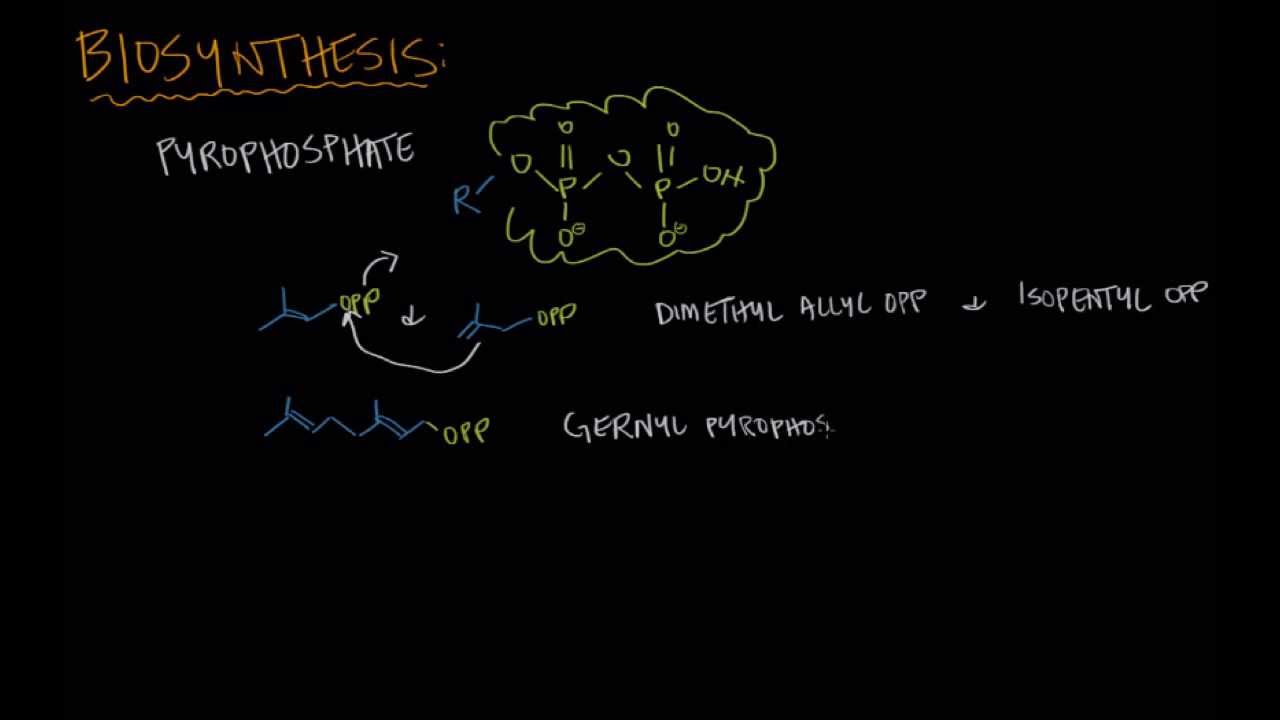 BIOSYNTHESIS:
PYROPHOSPHATE
O O
O O
R P P OH
O⊖ O⊖
OPP OPP DIMETHYL ALLYL OPP & ISOPENTYL OPP
&
OPP GERNYL PYROPHOS